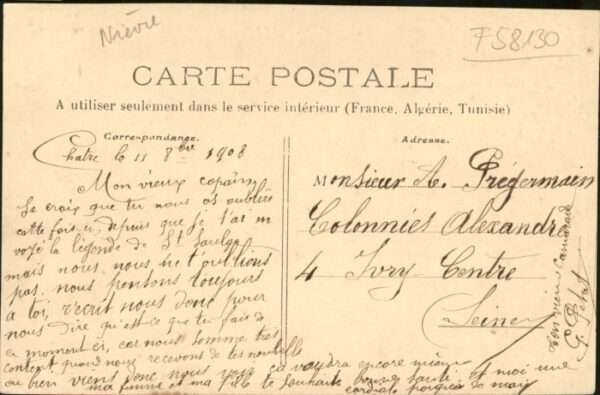 Nièvre
F58130
CARTE POSTALE
A utiliser seulement dans le service intérieur (France, Algérie, Tunisie)
Correspondance.
Chatre le 11 8bre 1908
Mon vieux copain
Je crois que tu nous as oubliés
cette fois ci, depuis que je t'ai en
voyé la légende de St Saulge
mais nous, nous ne t'oublions
pas, nous pensons toujours
a toi, récrit nous donc pour
nous dire qu'est-ce que tu fais de
ce moment ci, car nous somme très
content quand nous recevons de tes nouvelle
ou bien viens donc nous voir ça vaudra encore mieux
ma femme et ma fille te souhaite bonne santé et moi une
cordiale poignée de main
Ton vieux Camarade
Adresse.
Monsieur A. Prégermain
Colonnies Alexandre
4 Ivry Centre
Seine